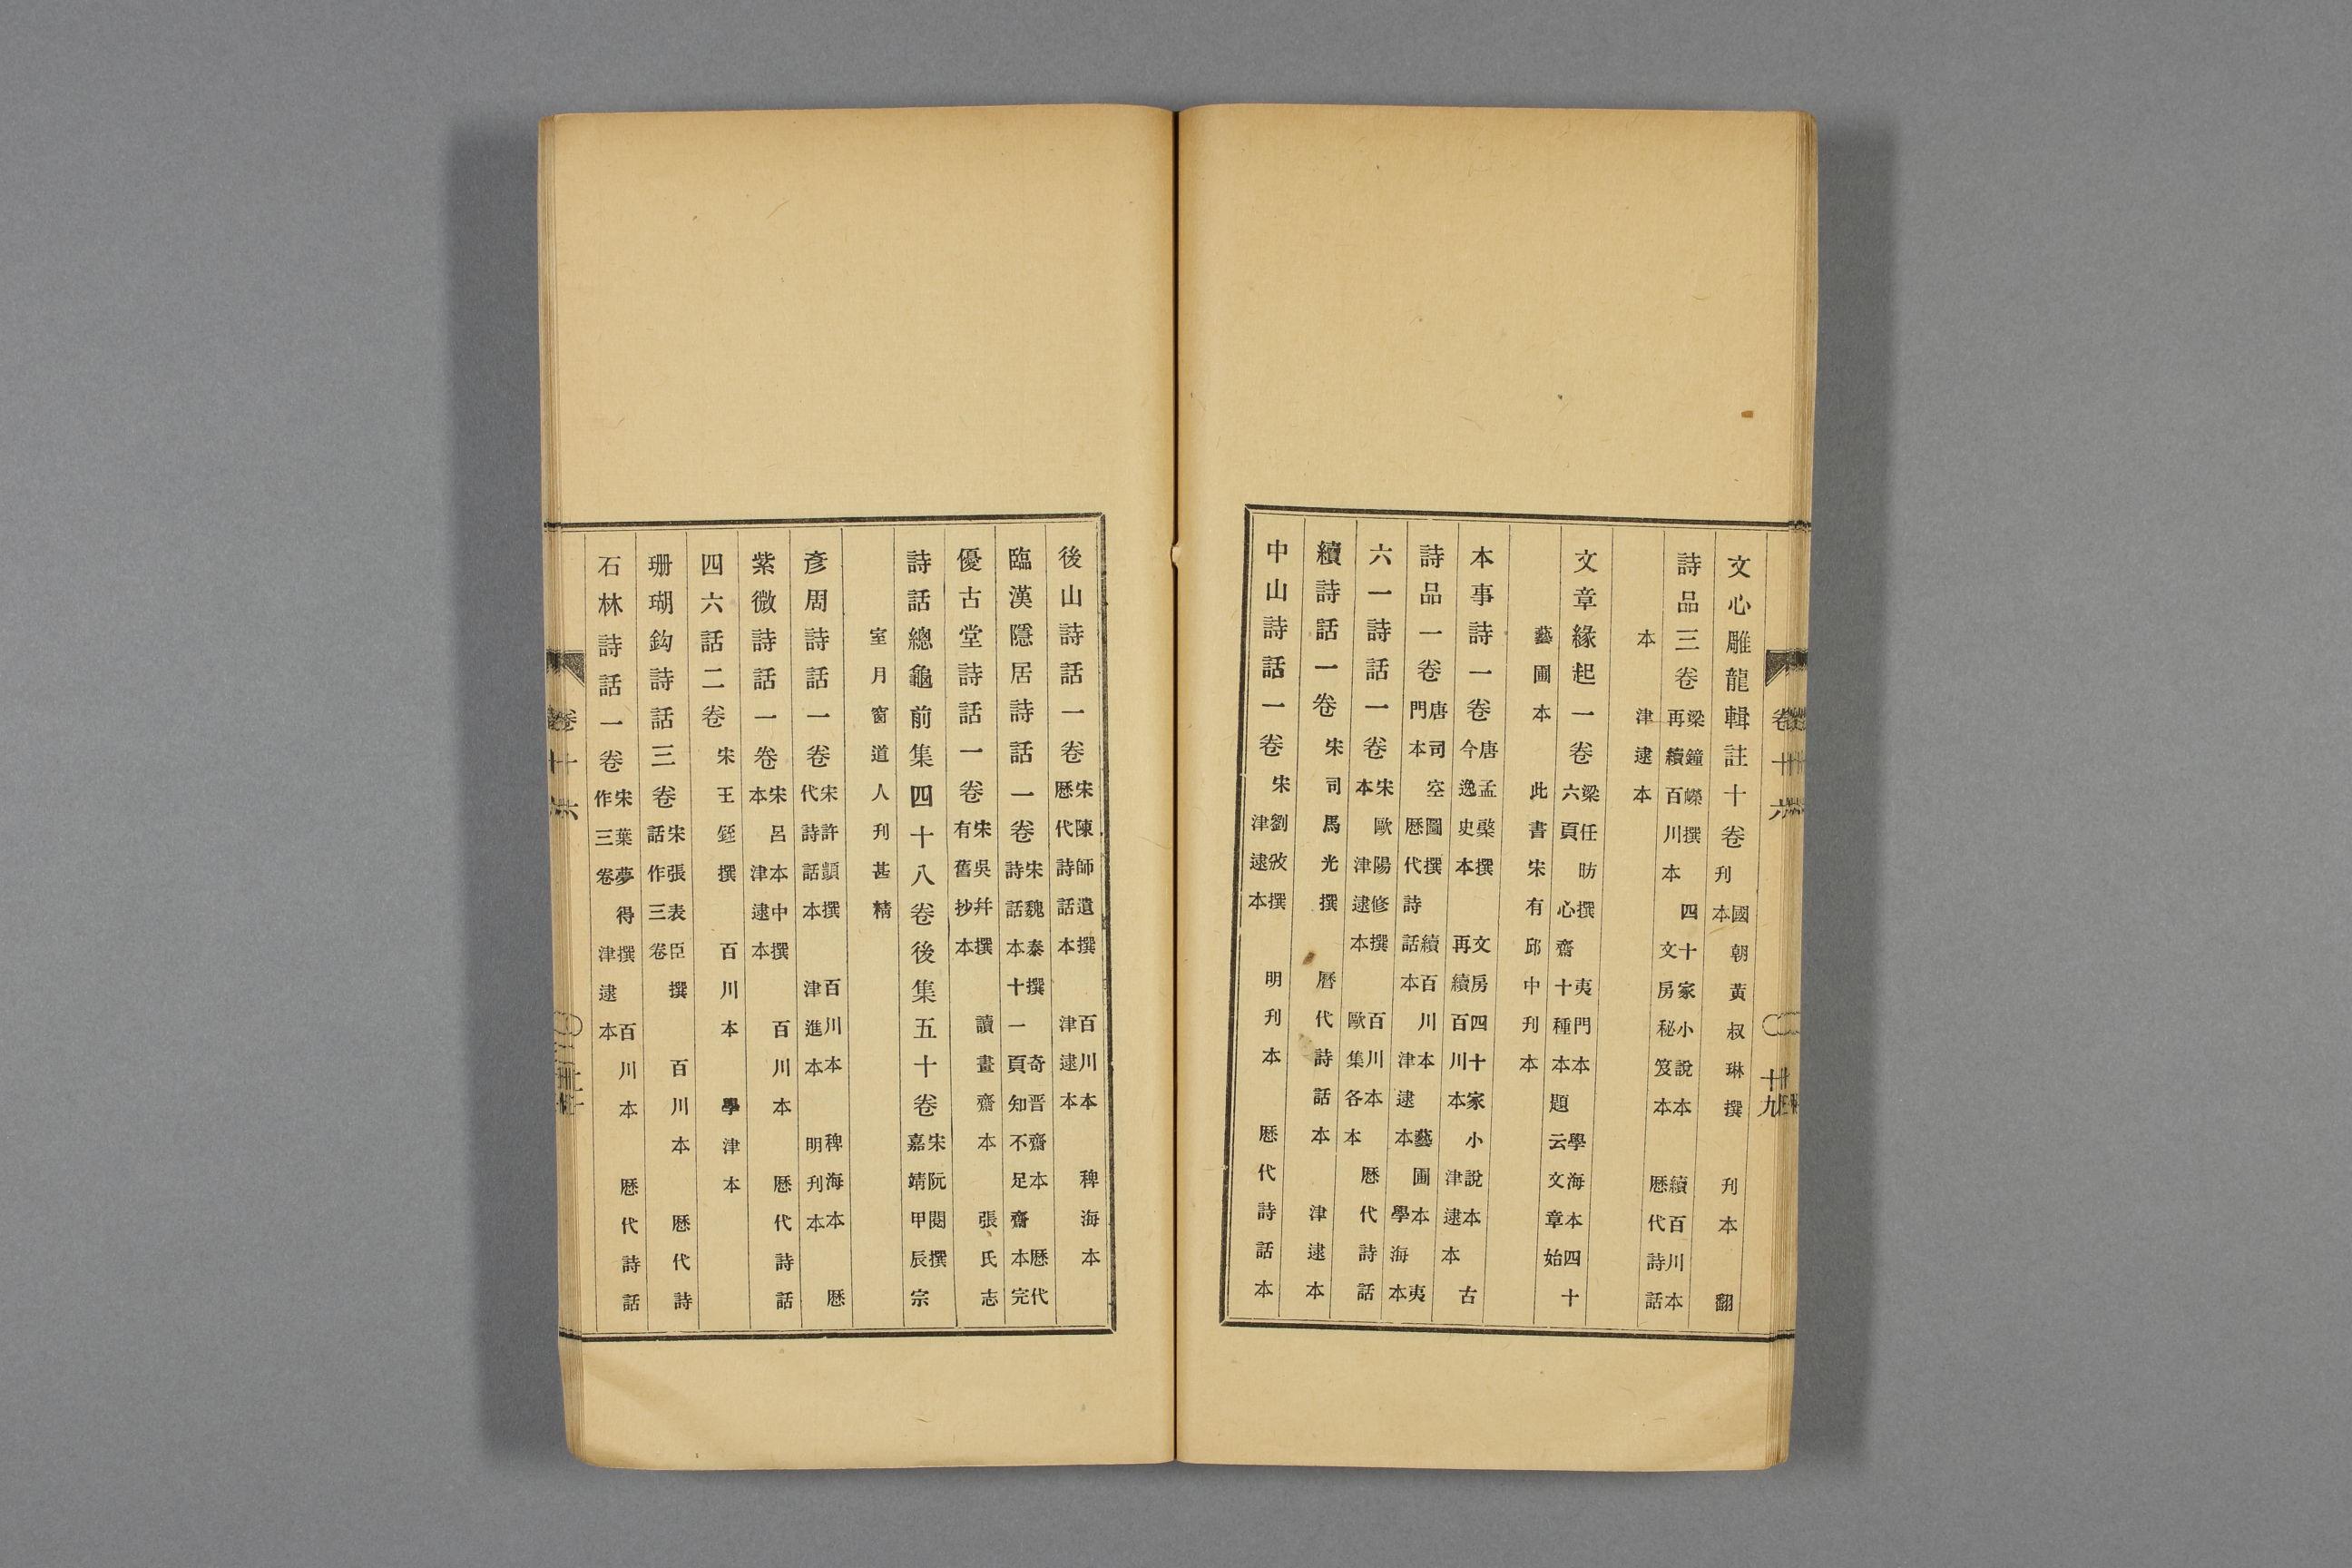 文心雕龍輯註十卷 國朝黃叔琳撰 刊本 翻刊本
詩品三卷 梁鐘嶸撰 四十家小說本 續百川本 再續百川本 文房秘笈本 厯代詩話
本 津逮本
文章緣起一卷 梁任昉撰 夷門本 學海本四十六頁 心齋十種本 題云文章始
藝圃本 此書宋有邱中刊本
本事詩一卷 唐孟棨撰 文房四十家小說本 古今逸史本 再續百川本 津逮本
詩品一卷 唐司空圖撰 續百川本 藝圃本 夷門本 厯代詩話本 津逮本 學海本
六一詩話一卷 宋歐陽修撰 百川本 厯代詩話本 津逮本 歐集各本
續詩話一卷 宋司馬光撰 曆代詩話本 津逮本
中山詩話一卷 宋劉攽撰 明刊本 厯代詩話本 津逮本
後山詩話一卷 宋陳師遣撰 百川本 稗海本 厯代詩話本 津逮本
臨漢隱居詩話一卷 宋魏泰撰 奇晋齋本 厯代詩話本 十一頁知不足齋本完
優古堂詩話一卷 宋吳幷撰 讀畫齋本 張氏志有舊抄本
詩話總龜前集四十八卷後集五十卷 宋阮閱撰 嘉靖甲辰宗
室月窗道人刊甚精
彥周詩話一卷 宋許顗撰 百川本 稗海本 厯代詩話本 津進本 明刊本
紫微詩話一卷 宋呂本中撰 百川本 厯代詩話本 津逮本
四六話二卷 宋王銍撰 百川本 學津本
珊瑚鈎詩話三卷 宋張表臣撰 百川本 厯代詩話作三卷
石林詩話一卷 宋葉夢得撰 百川本 厯代詩話作三卷 津逮本